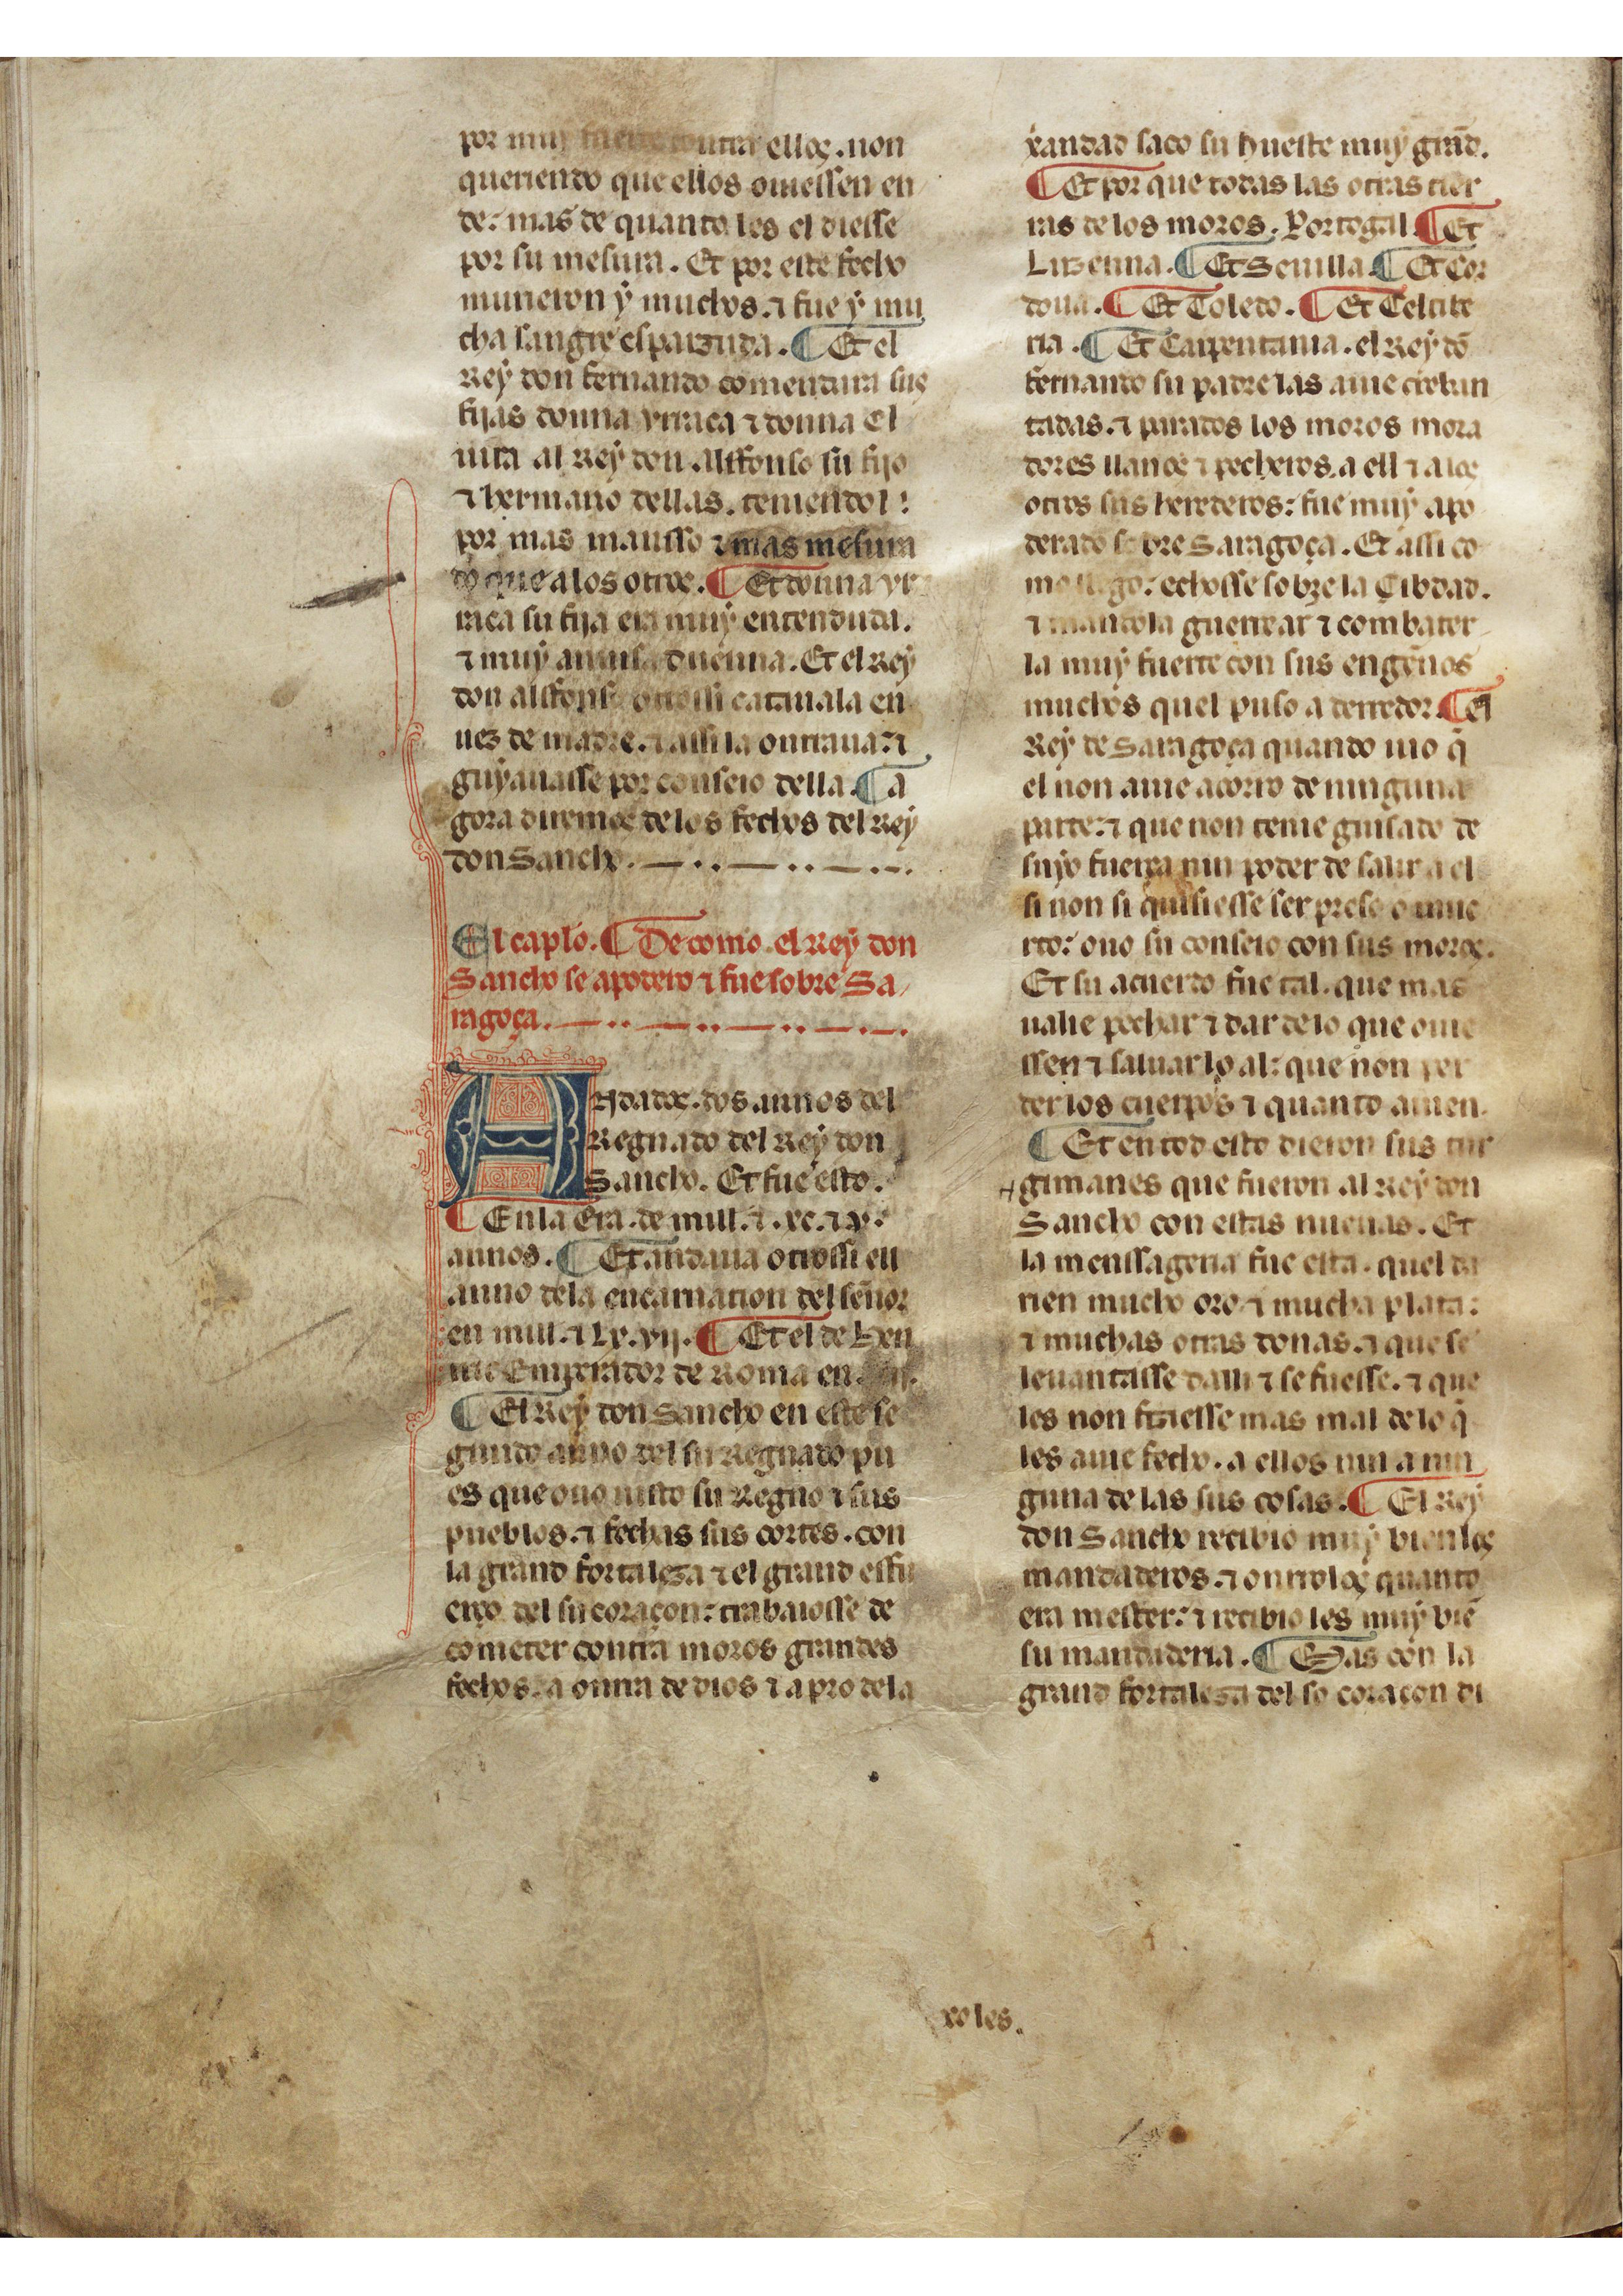 por muy fuerte contra ellos. non
queriendo que ellos ouiessen en
de: mas de quanto les el diesse
por su mesura. Et por este fecho
murieron ÿ muchos. ⁊ fue ÿ mu
cha sangre esparzuda. ¶ Et el
Reÿ don fernando comendara sus
fijas donna vrraca ⁊ donna El
uira al Reÿ don Alffonso su fijo
⁊ hermano dellas. teniendol:
por mas mansso ⁊ mas mesura
do que a los otros. ¶ Et donna vr
raca su fija era muÿ entenduda.
⁊ muÿ duenna. Et el Reÿ
don alffonso otrossi cataua la en
uez de madre. ⁊ assi la onrraua: ⁊
guÿauasse por conseio della. ¶ A
gora diremos de los fechos del Reÿ
don Sancho.
El caplo. ¶ De como el Reÿ don
Sancho se apodero ⁊ fue sobre Sa
ragoça.
Andados. dos annos del
Regnado del Reÿ don
Sancho. Et fue esto.
¶ En la Era. de mill. ⁊. xc. ⁊ v.
annos. ¶ Et andaua otrossi ell
anno dela encarnation del sennor
en mill. ⁊ Lx. vij. ¶ Et el de Hen
ric Emperador de Roma en.
¶ El Reÿ don Sancho en este se
gundo anno del su Regnado pu
es que ouo uisto su Regno ⁊ sus
pueblos. ⁊ fechas sus cortes. con
la grand fortaleza ⁊ el grand esfu
erço del su coraçon: trabaiosse de
cometer contra moros grandes
fechos. a onrra de dios ⁊ a pro dela
xandad saco su hueste muÿ grand.
¶ Et por que todas las otras tier
ras de los moros. Portogal. ¶ Et
Luzenna. ¶ Et Seuilla. ¶ Et Cor
doua. ¶ Et Toledo. ¶ Et Celtibe
ria. ¶ Et Carpentania. el Reÿ dō
fernando su padre las auie crebran
tadas. ⁊ parados los moros mora
dores llanos ⁊ pecheros. a ell ⁊ a los
otros sus herederos: fue muÿ apo
derado sobre Saragoça. Et assi co
mo llego: echosse sobre la Çibdad.
⁊ mandola guerrear ⁊ combater
la muÿ fuerte con sus engennos
muchos quel puso a derredor. ¶ El
Reÿ de Saragoça quando uio q̄
el non auie acorro de ninguna
parte: ⁊ que non tenie guisado de
suÿo fuerça nin poder de salir a el
si non si quisiesse ser preso o mue
rto: ouo su conseio con sus moros.
Et su acuerdo fue tal. que mas
ualie pechar ⁊ dar de lo que ouie
ssen ⁊ saluar lo al: que non per
der los cuerpos ⁊ quanto auien.
¶ Et en tod esto dieron sus tur
gimanes que fueron al Reÿ don
Sancho con estas nueuas. Et
la menssageria fue esta. quel da
rien mucho oro. ⁊ mucha plata:
⁊ muchas otras donas. ⁊ que se
leuantasse dalli ⁊ se fuesse. ⁊ que
les non fiziesse mas mal de lo q̄
les auie fecho. a ellos nin a nin
guna de las sus cosas. ¶ El Reÿ
don Sancho recibio muÿ bien los
mandaderos. ⁊ onrrolos quanto
era mester: ⁊ recibio les muÿ biē
su mandaderia. ¶ Mas con la
grand fortaleza del so coraçon di
xo les.